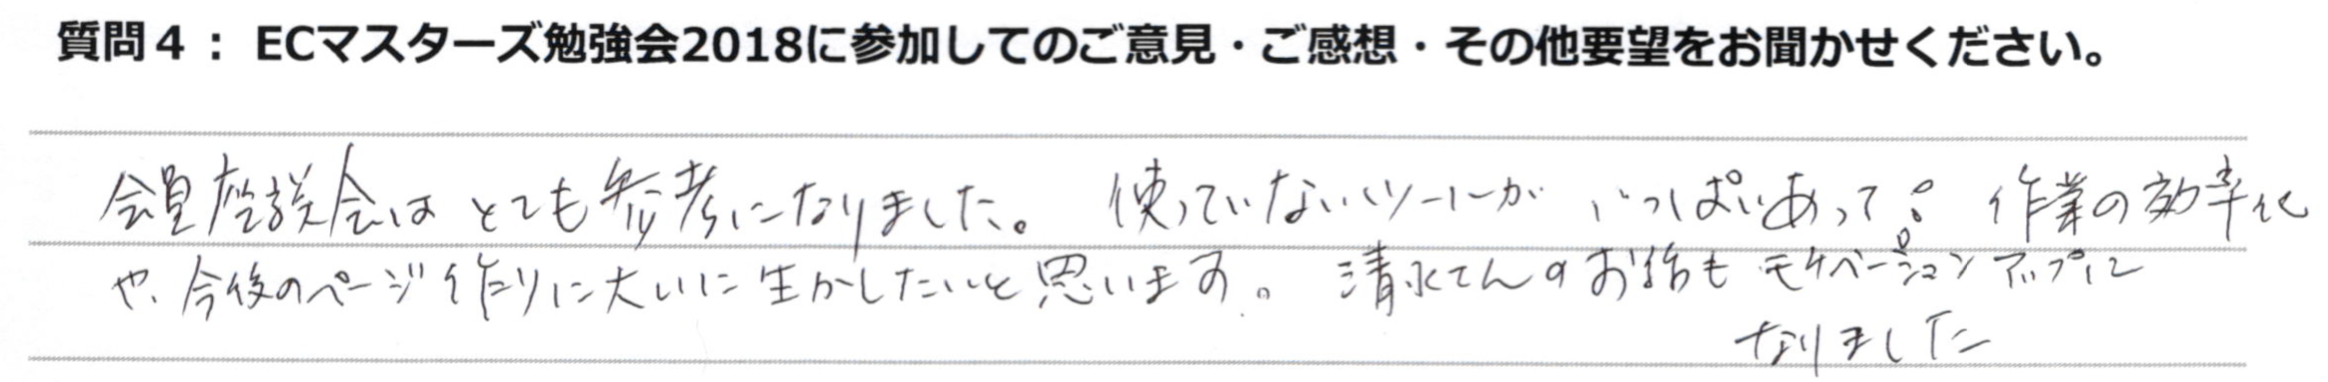 質問４： ECマスターズ勉強会2018に参加してのご意見・ご感想・その他要望をお聞かせください。
会員座談会はとても参考になりました。使っていないツールがいっぱいあって 作業の効率化
や、今後のページ作りに大いに生かしたいと思います。清水さんのお話もモチベーションアップに
なりました